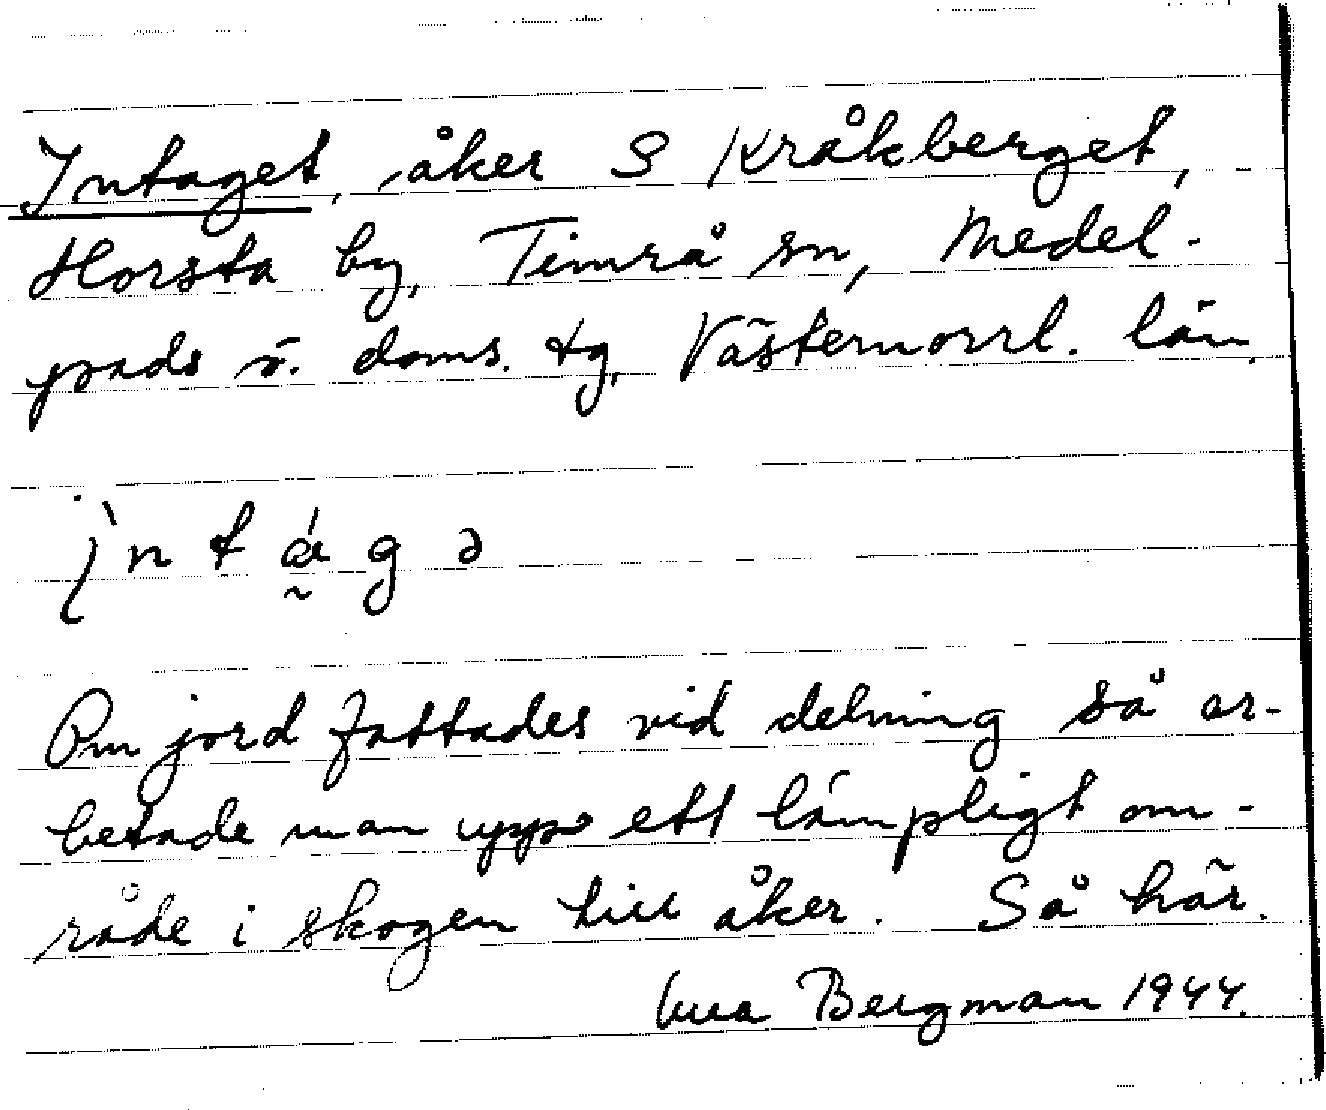 Intaget, åker S Kråkberget,
Horsta by, Timrå sn, Medel-
pads ö. doms. tg, Västernorrl. län.
ì n t á̰ g ə
Om jord fattades vid delning så ar-
betade man upp ett lämpligt om-
råde i skogen till åker. Så här.
Bergman 1944.